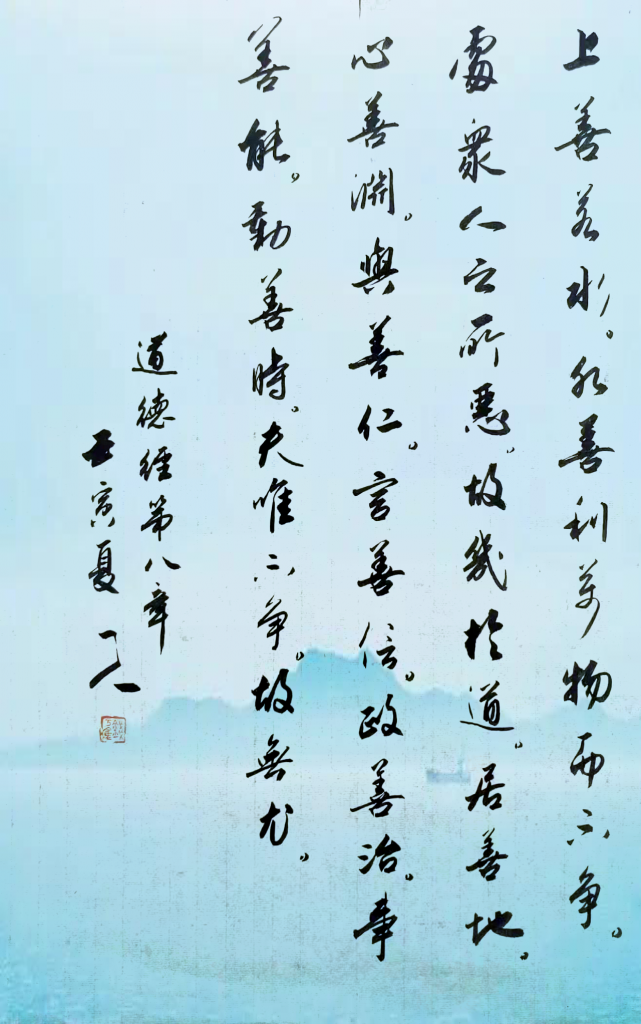 上善若水。水善利萬物而不争。
處衆人之所惡。故幾於道。居善地。
心善淵。與善仁。言善信。政善治。事
善能。動善時。夫唯不争。故無尤。
道德經第八章
壬寅夏